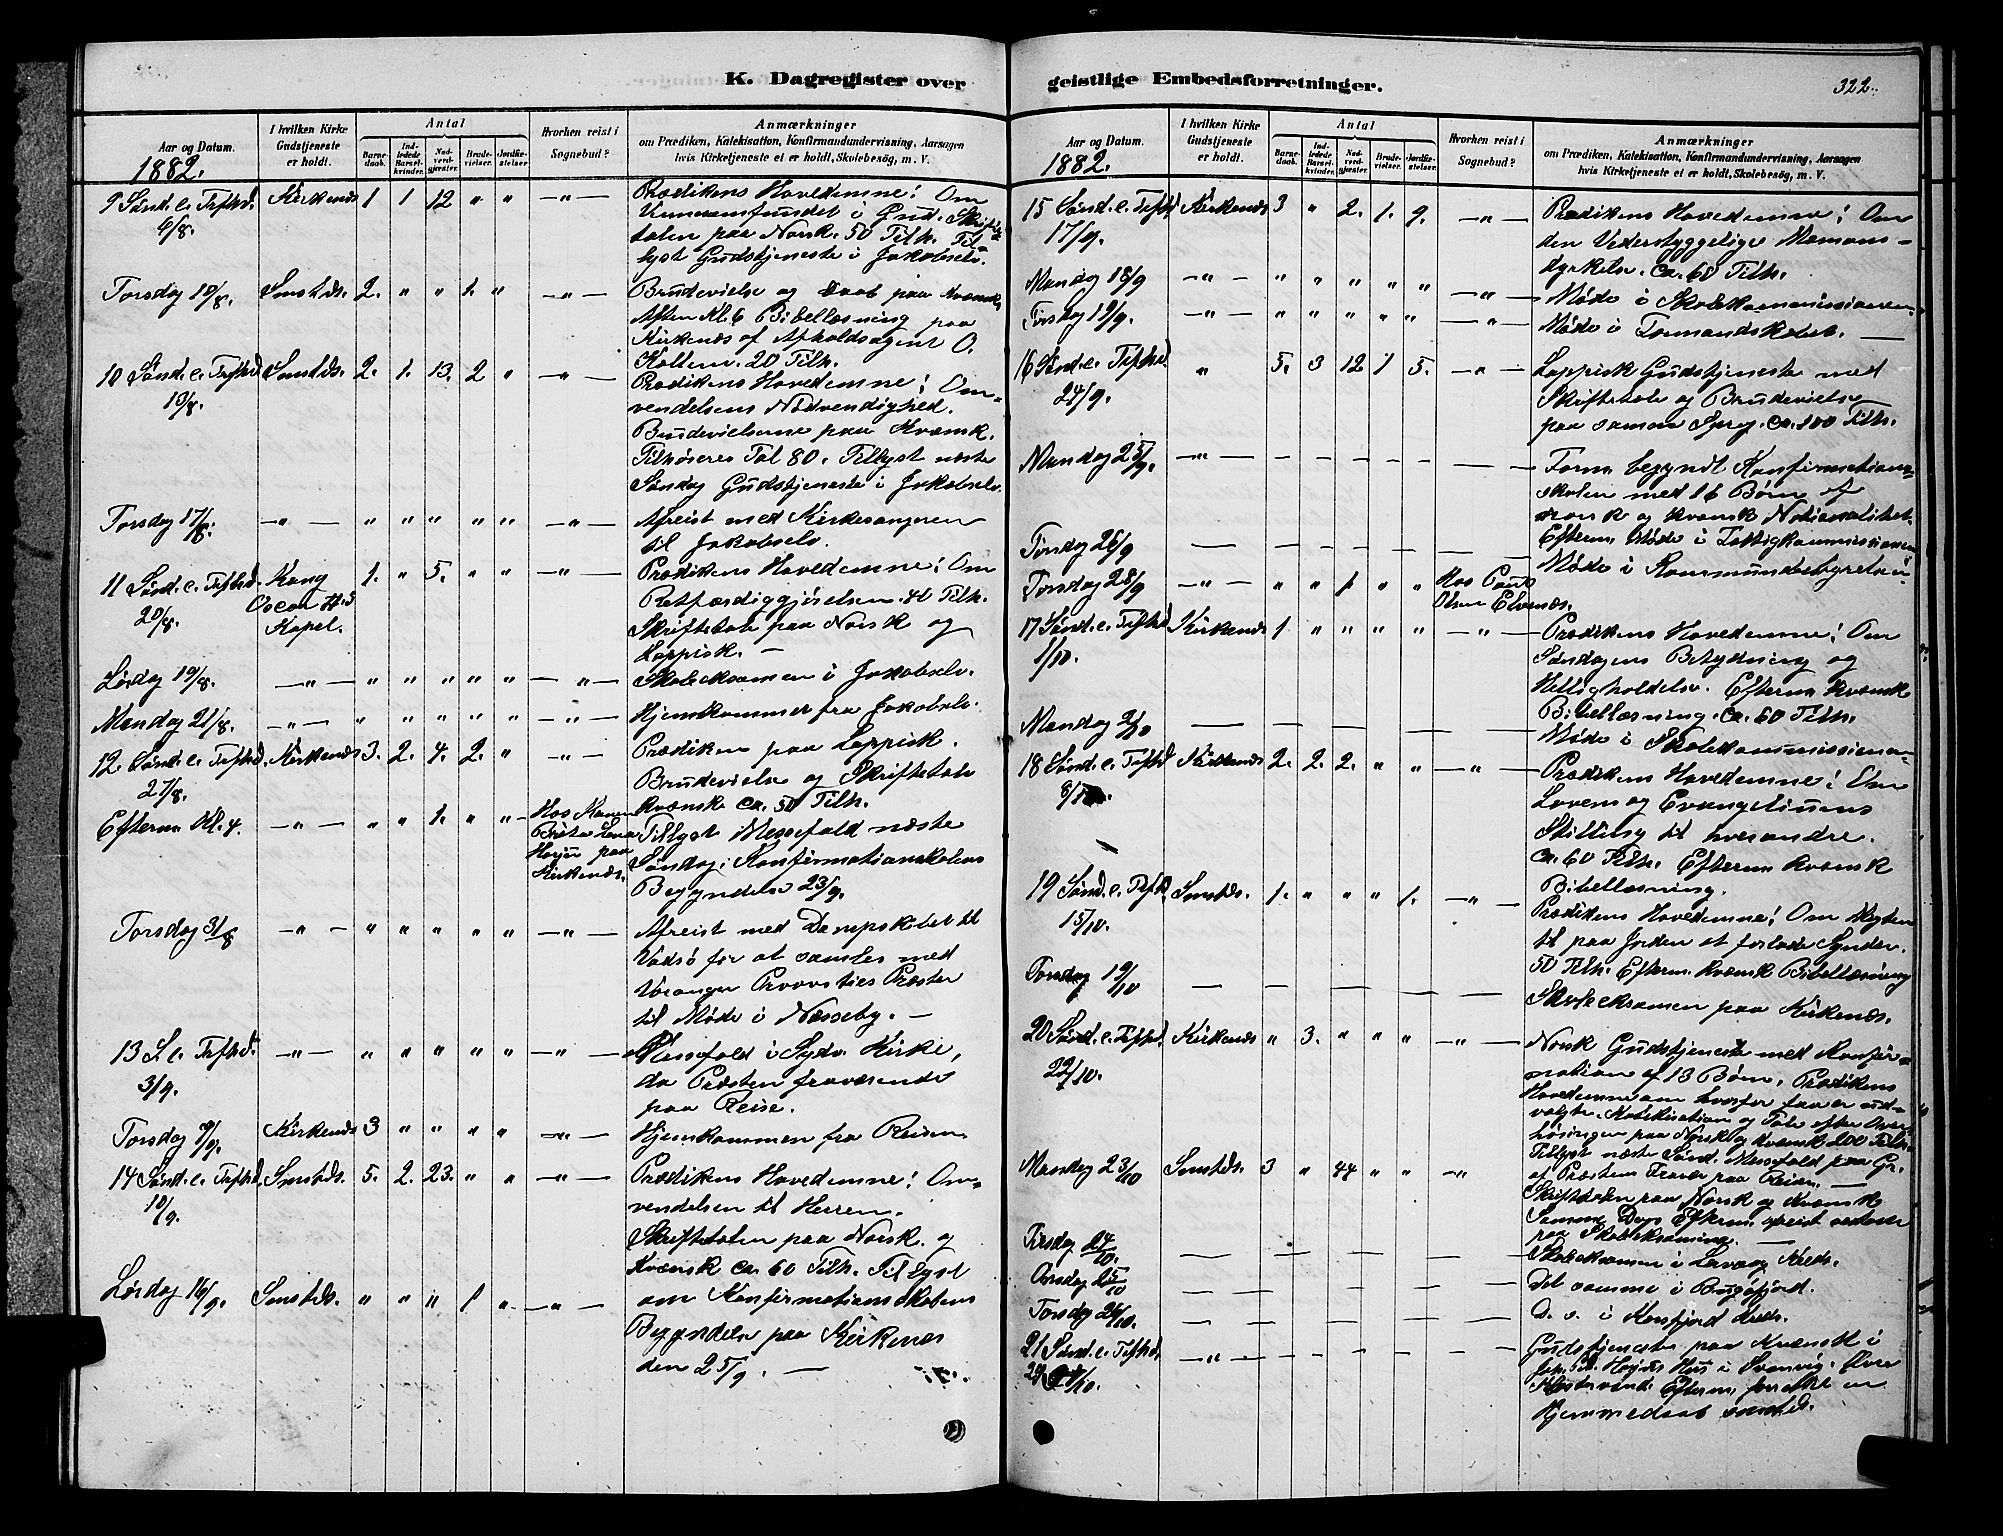 K. Dagregister over
Aar og Datum.
I hvilken Kirke
Gudstjeneste
er holdt.
Antal
Barne-
daab.
Ind-
ledede
Barsel-
kvinder.
Nad-
verd-
gjæster.
Brude-
vielser.
Jordfæ-
stelser.
Hvorhen reist i
Sognebud?
Anmærkninger
om Prædiken, Katekisation, Konfirmandundervisning, Aarsagen
hvis Kirketjeneste ei er holdt, Skolebesøg, m. V.
1882.
9 Sønd. e. Trefhd. Kirkenæs 1 1 12 " " —"— Prædikens Hovedemne: Om
6/8. i Gud. Skrifte-
talen paa Norsk. 50 Tilh. Til-
lyst Gudstjeneste i Jakobselv.
Torsdag 10/8. Smstds. 2. " " 1. " —"— Brudevielse og Daab paa Kvænsk.
Aften Kl. 6 Bibellæsning paa
Kirkenæs af Afholdsagent O.
Kollem. 20 Tilh.
10 Sønd. e. Trefhd. Smstds. 2. 1. 13. 2 " —"— Prædikens Hovedemne: Om-
13/8. vendelsens Nødvendighed.
Brudevielserne paa Kvænsk.
Tilhøreres Tal 80. Tillyst næste
Søndag Gudstjeneste i Jakobselv.
Torsdag 17/8. —"— " " " " " —"— Afreist med Kirkesangeren
til Jakobselv.
11 Sønd. e. Trefhd. Kong 1. " 5. " " —"— Prædikens Hovedemne: Om
20/8. Oscar II.s Retfærdiggjørelsen. 40 Tilh.
Kapel. Skriftetale paa Norsk og
Lappisk. —
Lørdag 19/8. —"— " " " " " —"— Skoleeksamen i Jakobselv.
Mandag 21/8. —"— " " " " " —"— Hjemkommet fra Jakobselv.
12 Sønd. e. Trefhd. Kirkenæs 3. 2. 4. 2. " —"— Prædiken paa Lappisk.
27/8. Brudevielse og Skriftetale
Kvænske ca. 50 Tilh.
Efterm. Kl. 4. —"— " " 1. " " Hos Tillyst Messefald næste
Brita Lena
paa Søndag; Konfirmationsskolens
Kirkenæs. Begyndelse 23/9.
Torsdag 31/8 —"— " " " " " —"— Afreist med Dampskibet til
Vadsø for at samles med
Varanger Provsties Præster
til Møde i Næsseby. —
13 S. e. Trefhd. —"— " " " " " —"— Messefald i Sydv. Kirke,
3/9. da Præsten fraværende
paa Reise.
Torsdag 7/9. Kirkenæs 3 " " " " —"— Hjemkommen fra Reisen
14 Sønd. e. Trefhd. Smstds. 5. 2. 23. " " —"— Prædikens Hovedemne: Om-
10/9. vendelsen til Herren.
Skriftetalen paa Norsk og
Kvænsk ca. 60 Tilh. Tillyst
Lørdag 16/9. Smstds. " " " 1 " —"— om Konfirmationsskolens
Begyndelse paa Kirkenæs
den 25/9. —
geistlige Embedsforretninger.
322.
Aar og Datum.
I hvilken Kirke
Gudstjeneste
er holdt.
Antal
Barne-
daab.
Ind-
ledede
Barsel-
kvinder.
Nad-
verd-
gjæster.
Brude-
vielser.
Jordfæ-
stelser.
Hvorhen reist i
Sognebud?
Anmærkninger
om Prædiken, Katekisation, Konfirmandundervisning, Aarsagen
hvis Kirketjeneste ei er holdt, Skolebesøg, m. V.
1882.
15 Sønd. e. Trefhd. Kirkenæs 3 " 2. 1. 9. —"— Prædikens Hovedemne: Om
17/9. den Vederstyggelige Mamons-
dyrkelse. ca. 60 Tilh.
Mandag 18/9 —"— " " " " " —"— Møde i Skolekommissionen.
Tirsdag 19/9. —"— " " " " " —"— Møde i Formandskabet. —
16 Sønd. e. Trefhd. " 5. 3 12 1 5. —"— Lappisk Gudstjeneste med
24/9. Skriftetale og Brudevielse
paa samme Sprog. ca. 100 Tilh.
Mandag 25/9. —"— — — — — — — Form. begyndt Konfirmations-
skolen med 16 Børn af
norsk og kvænsk Nationalitet.
Efterm. Møde i Fattigkommissionen
Tirsdag 26/9 — — — — — — — Møde i Kommunebestyrelsen.
Torsdag 28/9 —"— " " 1 " " Hos
Olsen Elvenæs.
17 Sønd. e. Trefhd. Kirkenæs 1 " " " " —"— Prædikens Hovedemne: Om
1/10. Søndagens Betydning og
Helligholdelse. Efterm. Kvænsk
Bibellæsning. ca. 60 Tilh.
Mandag 2/10 — — — — — — — Møde i Skolekommissionen
18 Sønd. e. Trefhd. Kirkenæs 2. 2. 2. " " —"— Prædikens Hovedemne: Om
8/10. Lovens og Evangeliums
Stilling til hverandre.
ca. 60 Tilh. Efterm. Kvænsk
Bibellæsning.
19 Sønd. e. Trefhd. Smstds. 1. " " " 1. —"— Prædikens Hovedemne: Om Magten
15/10. til paa Jorden at forlade Synder.
50 Tilh. Efterm. Kvænsk Bibellæsning
Torsdag 19/10 — — — — — — — Skoleeksamen paa Kirkenæs.
20 Sønd. e. Trefhd. Kirkenæs " 3. " " " —"— Norsk Gudstjeneste med Konfir-
22/10. mation af 13 Børn. Prædikens
Hovedemne om hvorfor faa er ud-
valgte. Katekisation og Tale efter Over-
høringen paa Norsk og Kvænsk 200 Tilh.
Tillyst næste Sønd. Messefald paa Gr.
af Præstens Fravær paa Reise. —
Mandag 23/10 Smstds. 3 " 44 " " —"— Skriftetalen paa Norsk og Kvænsk
Samme Dags Efterm. afreist
paa Skoleeksamina. —
Tirsdag 24/10. — — — — — — — Skoleeksamen i
Onsdag 25/10 — — — — — — — Det samme i Bugøfjord.
Torsdag 26/10. — — — — — — — D. s. i Korsfjord
21 Sønd. e. Trefhd. —"— — — — — — — Gudstjeneste paa Kvænsk i
29/10. Hus i Svanvig.
Efterm. foretaget en
Hjemmedaab smstds.